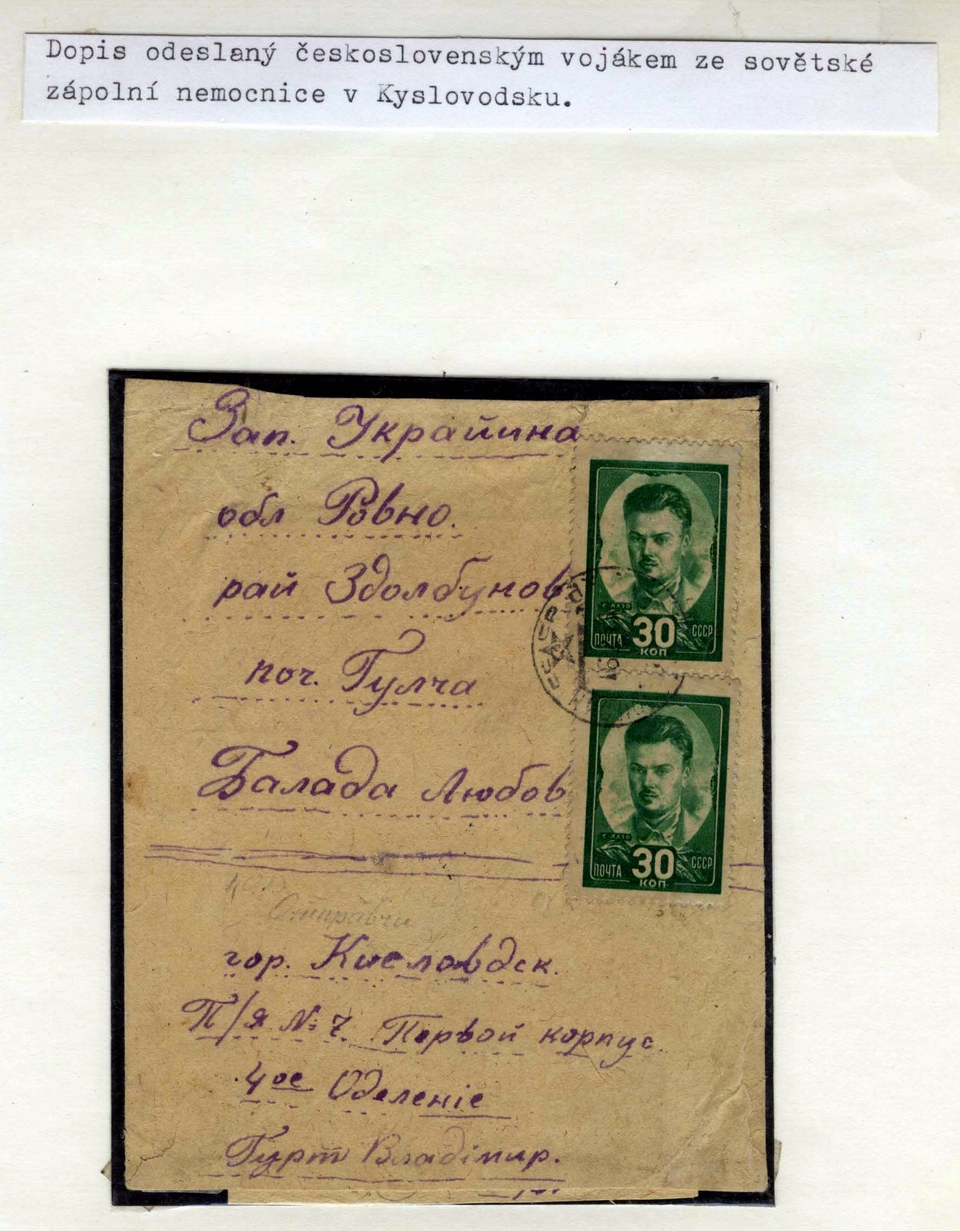 Dopis odeslaný československým vojákem ze sovětské
zápolní nemocnice v Kyslovodsku.
Зап. Украйина
обл Ровно.
рай Здолбунов
поч. Гулча
Балада Любов
ПОЧТА 30 СССР
КОП
ПОЧТА 30 СССР
КОП
гор. Кисловдск.
П/я № 7 Первой корпус.
4ое Оделеніе
Гурт Владімир.